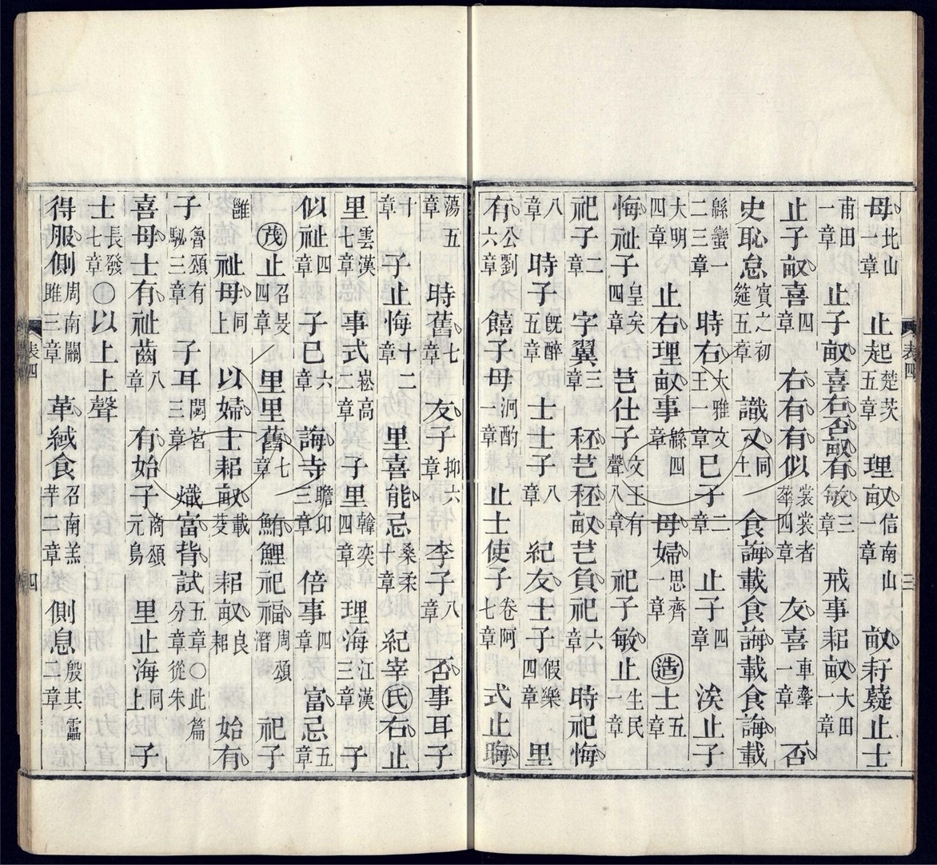 母北山一章 止起楚茨五章 理畝信南山一章 畝耔薿止士
甫田一章 止子畝喜右否畝有敏三章 戒事耜畝大田一章
止子畝喜四章 右有有似裳裳者華四章 友喜車舝一章 否
史恥怠賓之初筵五章 識又同上 食誨載食誨載食誨載
緜蠻一二三章 時右大雅文王一章 巳子二章 止子四章 涘止子
大明四章 止右理畝事緜四章 母婦思齊一章 造士五章
悔祉子皇矣四章 芑仕子文王有聲八章 祀子敏止生民一章
祀子二章 字翼三章 秠芑秠畝芑負祀六章 時祀悔
八章 時子旣醉五章 士士子八章 紀友士子假樂四章 里
有公劉六章 饎子母泂酌一章 止士使子卷阿七章 式止晦
表四 三
蕩五章 時舊七章 友子抑六章 李子八章 否事耳子
十章 子止悔十二章 里喜能忌桑柔十章 紀宰氏右止
里雲漢七章 事式崧高二章 子里韓奕四章 理海江漢三章 子
似祉四章 子巳六章 誨寺瞻卬三章 倍事四章 富忌五章
茂止召旻四章 里里舊七章 鮪鯉祀福周頌潛 祀子
雝 祉母同上 以婦士耜畝載芟 耜畝良耜 始有
子魯頌有駜三章 子耳閟宮三章 熾富背試五章○此篇分章從朱
喜母士有祉齒八章 有始子商頌玄鳥 里止海同上 子
士長發七章○以上上聲
得服側周南關雎三章 革緎食召南羔羊二章 側息殷其靁二章
表四 四